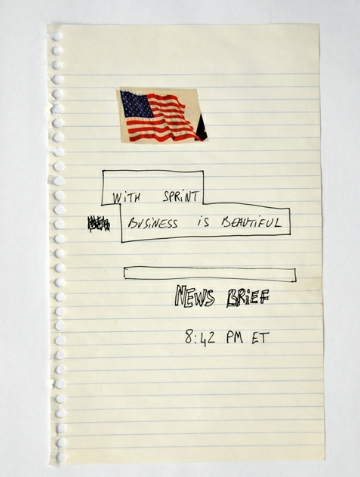 WITH SPRINT
BUSINESS IS BEAUTIFUL
NEWS BRIEF
8:42 PM ET